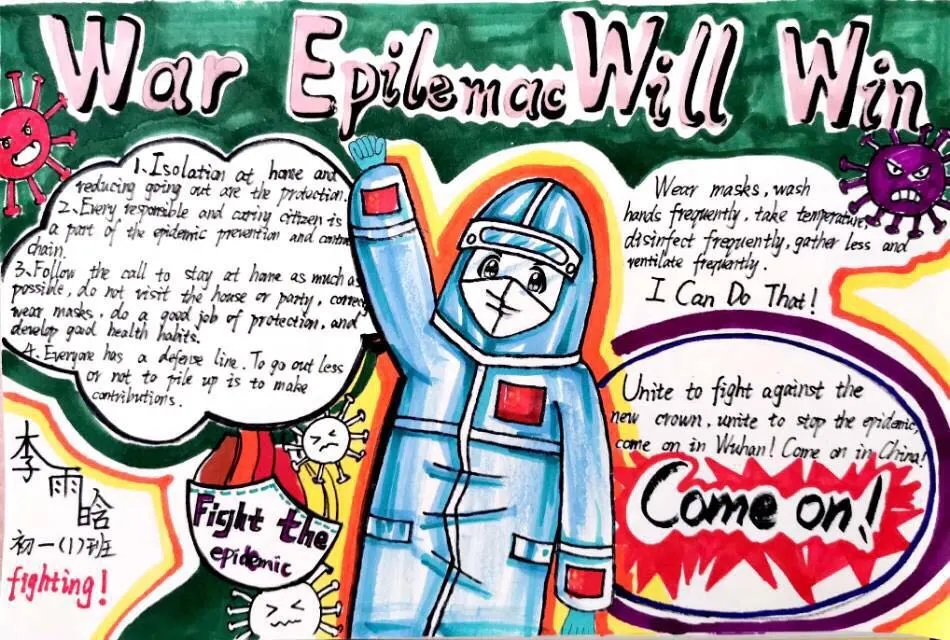 War Epilemac Will Win
1. Isolation at home and
reducing going out are the protection.
2. Every responsible and caring citizen is
a part of the epidemic prevention and control
chain.
3. Follow the call to stay at home as much as
possible, do not visit the house or party, correct
wear masks, do a good job of protection, and
develop good health habits.
4. Everyone has a defense line. To go out less
or not to pile up is to make
contributions.
Wear masks, wash
hands frequently, take temperature,
disinfect frequently, gather less and
ventilate frequently.
I Can Do That!
Unite to fight against the
new crown, unite to stop the epidemic,
come on in Wuhan! Come on in China!
Come on!
李雨晗
初一(1)班
fighting!
Fight the
epidemic